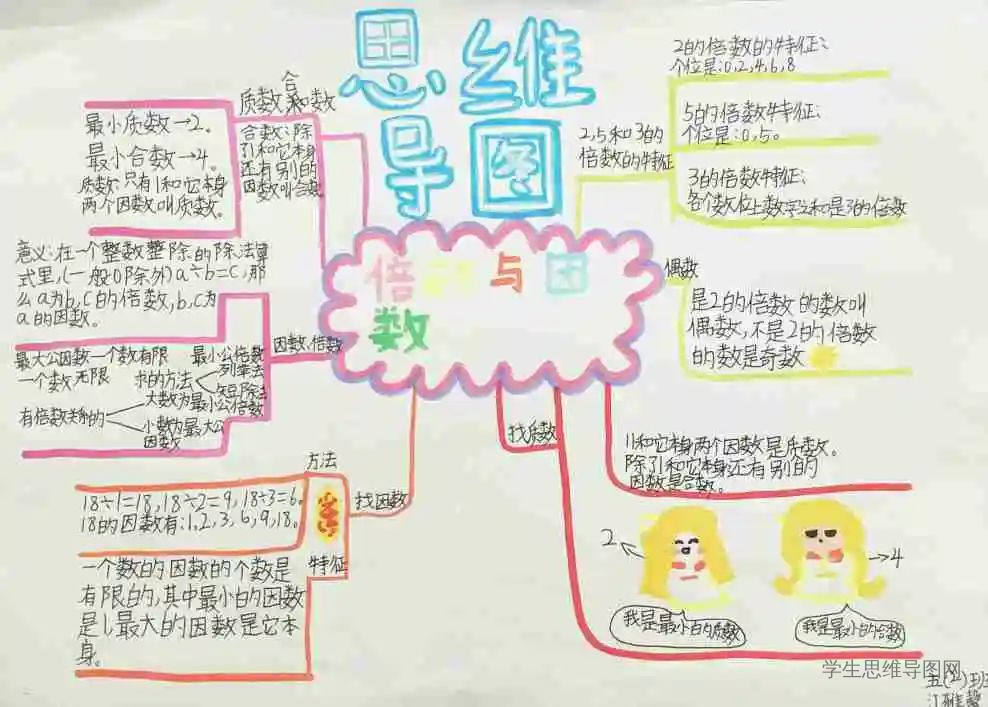 思维
导图
倍数与因
数
质数和合数
最小质数→2。
最小合数→4。
质数:只有1和它本身
两个因数叫质数。
合数:除
了1和它本身
还有别的
因数叫合数
意义:在一个整数整除的除法算
式里,(一般0除外)a÷b=c,那
么a为b,c的倍数,b,c为
a的因数。
因数、倍数
最大公因数一个数有限
一个数无限
最小公倍数
求的方法
列举法
短除法
有倍数关系的
大数为最小公倍数
小数为最大公
因数
找因数
方法
18÷1=18,18÷2=9,18÷3=6。
18的因数有:1,2,3,6,9,18。
特征
一个数的因数的个数是
有限的,其中最小的因数
是1,最大的因数是它本
身。
2,5和3的
倍数的特征
2的倍数的特征:
个位是:0,2,4,6,8
5的倍数特征:
个位是:0,5。
3的倍数特征:
各个数位上数字之和是3的倍数
偶数
是2的倍数的数叫
偶数,不是2的倍数
的数是奇数
找质数
1和它本身两个因数是质数。
除了1和它本身还有别的
因数是合数。
2
4
我是最小的质数
我是最小的合数
学生思维导图网
五(二)班